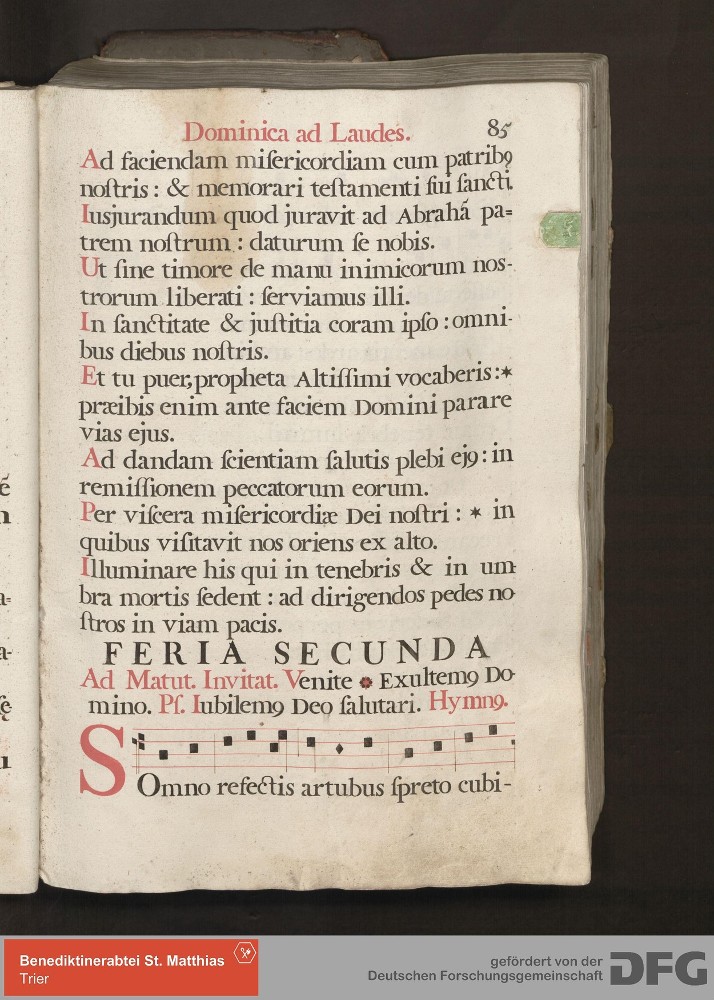 Dominica ad Laudes. 85
Ad faciendam miſericordiam cum patribꝰ
noſtris : & memorari teſtamenti ſui ſancti.
Iusjurandum quod juravit ad Abrahã pa=
trem noſtrum : daturum ſe nobis.
Ut ſine timore de manu inimicorum nos-
trorum liberati : ſerviamus illi.
In ſanctitate & juſtitia coram ipſo : omni-
bus diebus noſtris.
Et tu puer, propheta Altiſſimi vocaberis : *
præibis enim ante faciem Domini parare
vias ejus.
Ad dandam ſcientiam ſalutis plebi ejꝰ : in
remiſſionem peccatorum eorum.
Per viſcera miſericordiæ Dei noſtri : * in
quibus viſitavit nos oriens ex alto.
Illuminare his qui in tenebris & in um-
bra mortis ſedent : ad dirigendos pedes no
ſtros in viam pacis.
FERIA SECUNDA
Ad Matut. Invitat. Venite * Exultemꝰ Do-
mino. Pſ. Iubilemꝰ Deo ſalutari. Hymnꝰ.
SOmno refectis artubus ſpreto cubi-
Benediktinerabtei St. Matthias
Trier
gefördert von der
Deutschen Forschungsgemeinschaft
DFG